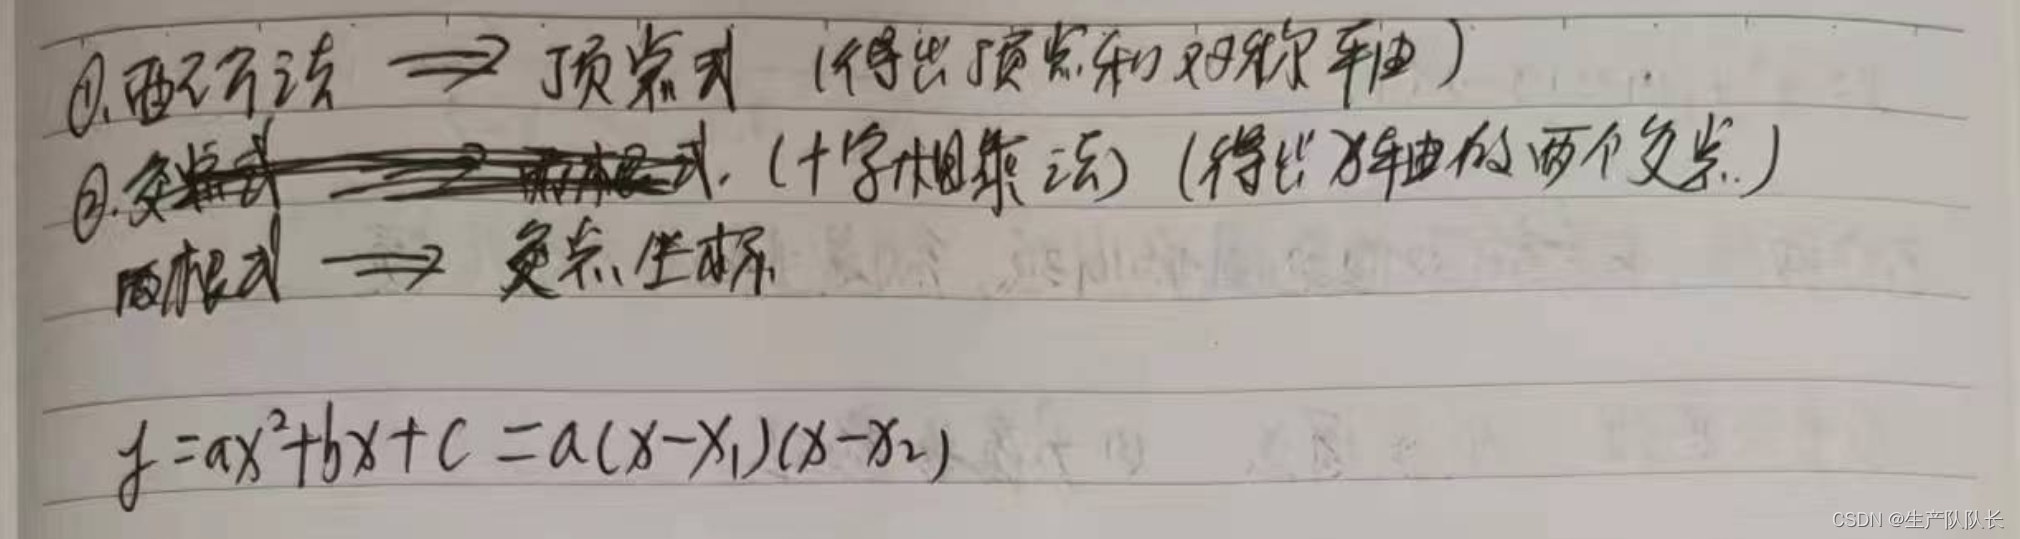 ①.配方法 ⟹ 顶点式 (得出顶点和对称轴)
②.交点式 ⟹ 两根式. (十字相乘法) (得出x轴的两个交点.)
两根式 ⟹ 交点坐标
y=ax²+bx+c=a(x-x₁)(x-x₂)
CSDN @生产队队长